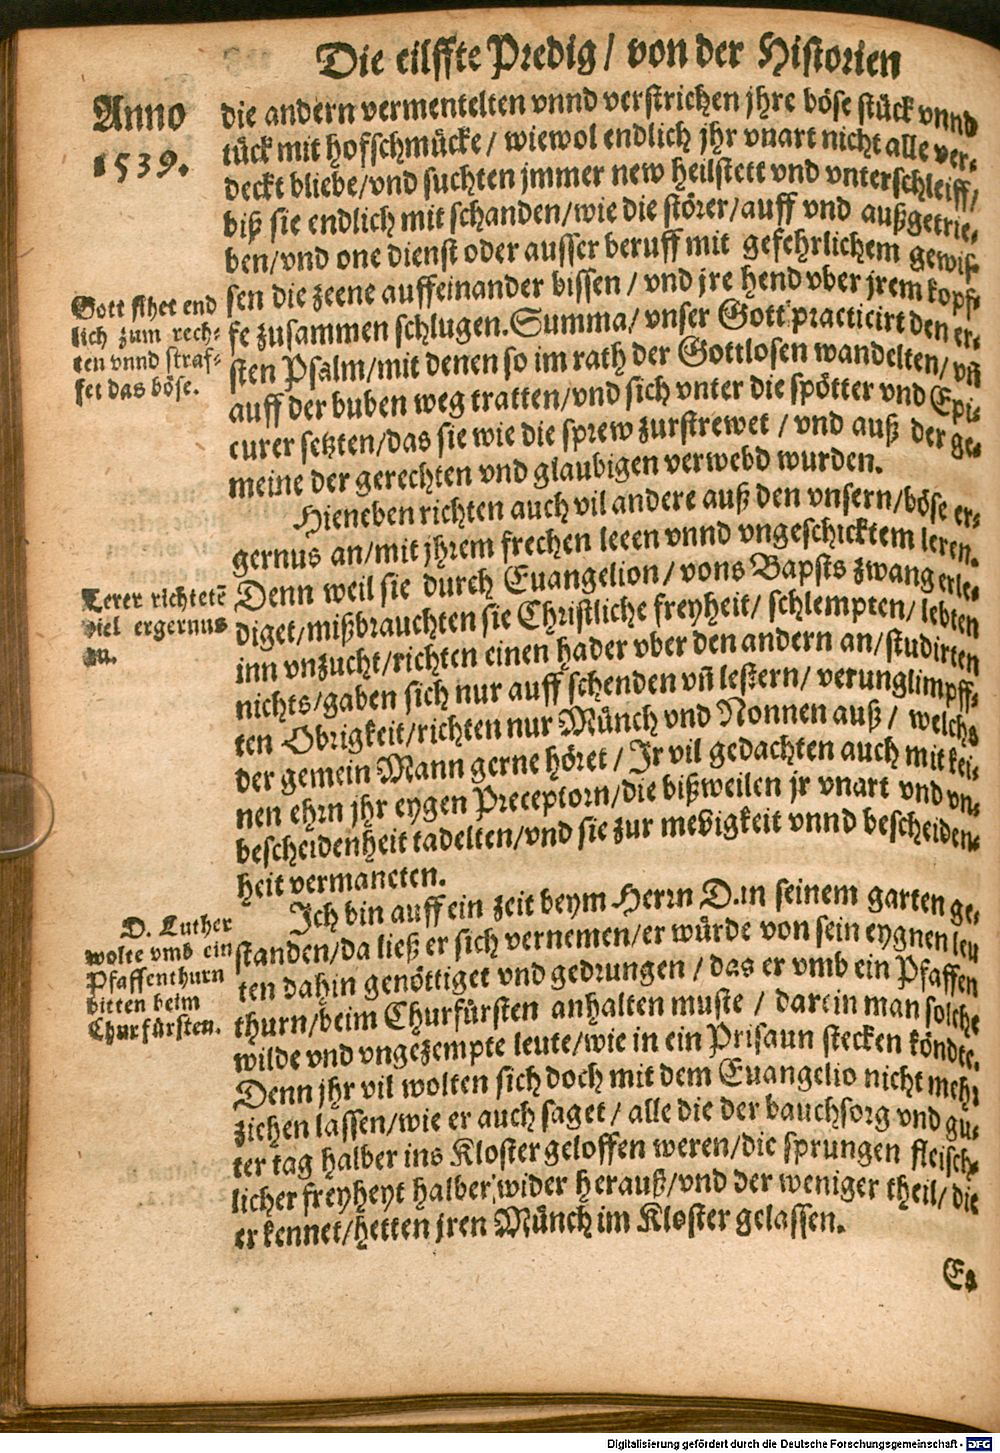 Die eilffte Predig / von der Historien
Anno
1539.
die andern vermentelten vnnd verstrichen jhre böse stück vnnd
tück mit hofschmücke / wiewol endlich jhr vnart nicht alle ver-
deckt bliebe/vnd suchten jmmer new heilstett vnd vnterschleiff/
biß sie endlich mit schanden/wie die störer/auff vnd außgetrie-
ben/vnd one dienst oder ausser beruff mit gefehrlichem gewis-
sen die zeene auffeinander bissen / vnd jre hend vber jrem kopf-
fe zusammen schlugen. Summa/ vnser Gott practicirt den er-
sten Psalm/mit denen so im rath der Gottlosen wandelten/ vñ
auff der buben weg tratten/vnd sich vnter die spötter vnd Epi-
curer setzten/das sie wie die sprew zurstrewet / vnd auß der ge-
meine der gerechten vnd glaubigen verwebd wurden.
Gott sihet end
lich zum rech-
ten vnnd straf-
fet das böse.
Hieneben richten auch vil andere auß den vnsern/böse er-
gernus an/mit jhrem frechen leeen vnnd vngeschicktem leren.
Denn weil sie durch Euangelion / vons Bapsts zwang erle-
diget/mißbrauchten sie Christliche freyheit/ schlempten/ lebten
inn vnzucht/richten einen hader vber den andern an/studirten
nichts/gaben sich nur auff schenden vñ lestern/ verunglimpff-
ten Obrigkeit/richten nur Münch vnd Nonnen auß / welchs
der gemein Mann gerne höret / Jr vil gedachten auch mit kei-
nen ehrn jhr eygen Preceptorn/die bißweilen jr vnart vnd vn-
bescheidenheit tadelten/vnd sie zur mevigkeit vnnd bescheiden-
heit vermaneten.
Lerer richtetē
viel ergernus
an.
Ich bin auff ein zeit beym Herrn D. in seinem garten ge-
standen/da ließ er sich vernemen/er würde von sein eygnen leu
ten dahin genöttiget vnd gedrungen / das er vmb ein Pfaffen
thurn/beim Churfürsten anhalten muste / darein man solche
wilde vnd vngezempte leute/wie in ein Prisaun stecken köndte.
Denn jhr vil wolten sich doch mit dem Euangelio nicht mehr
ziehen lassen/wie er auch saget / alle die der bauchsorg vnd gu-
ter tag halber ins Kloster geloffen weren/die sprungen fleisch-
licher freyheyt halber wider herauß/vnd der weniger theil/ die
er kennet/hetten jren Münch im Kloster gelassen.
D. Luther
wolte vmb ein
Pfaffenthurn
bitten beim
Churfürsten.
Es
Digitalisierung gefördert durch die Deutsche Forschungsgemeinschaft - DFG